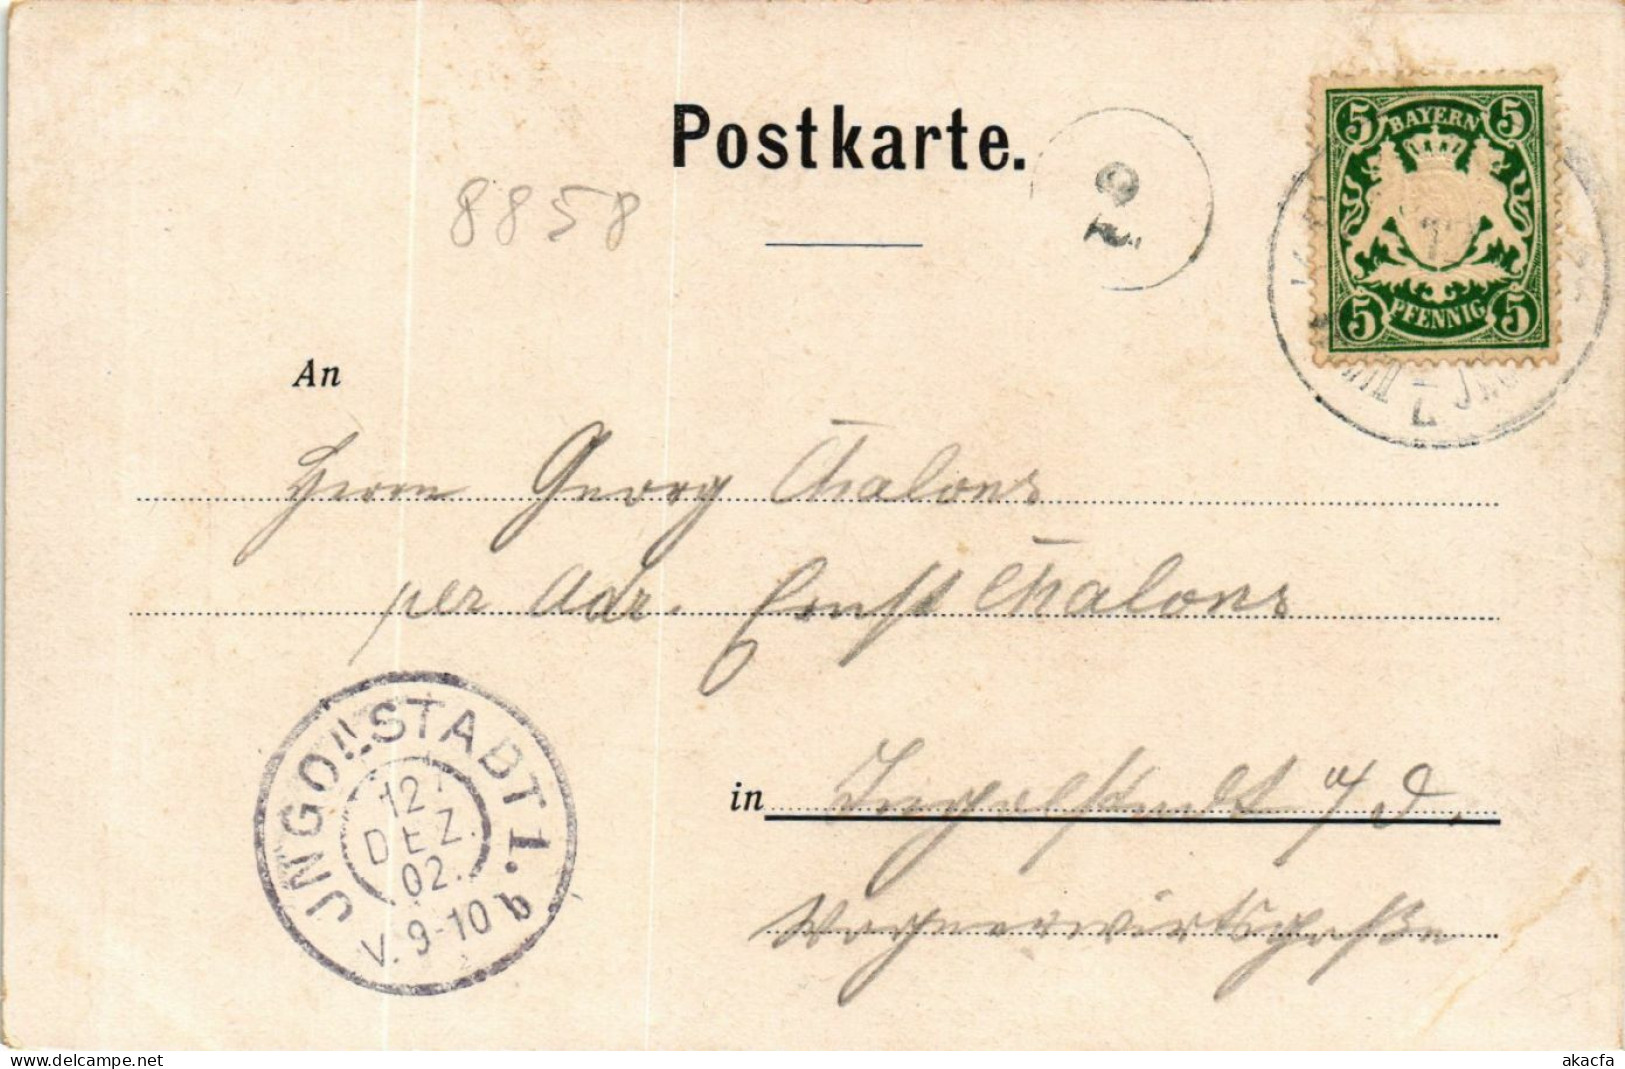 Postkarte.
8858
BAYERN
5 5
5 5
PFENNIG
An
Herrn Georg Chalons
per Adr. Ernst Chalons
in Ingolstadt a/d.
Wagnerwirtsgaße
JNGOLSTADT 1.
12.
DEZ.
02.
V. 9-10 b
akacfa
delcampe.net